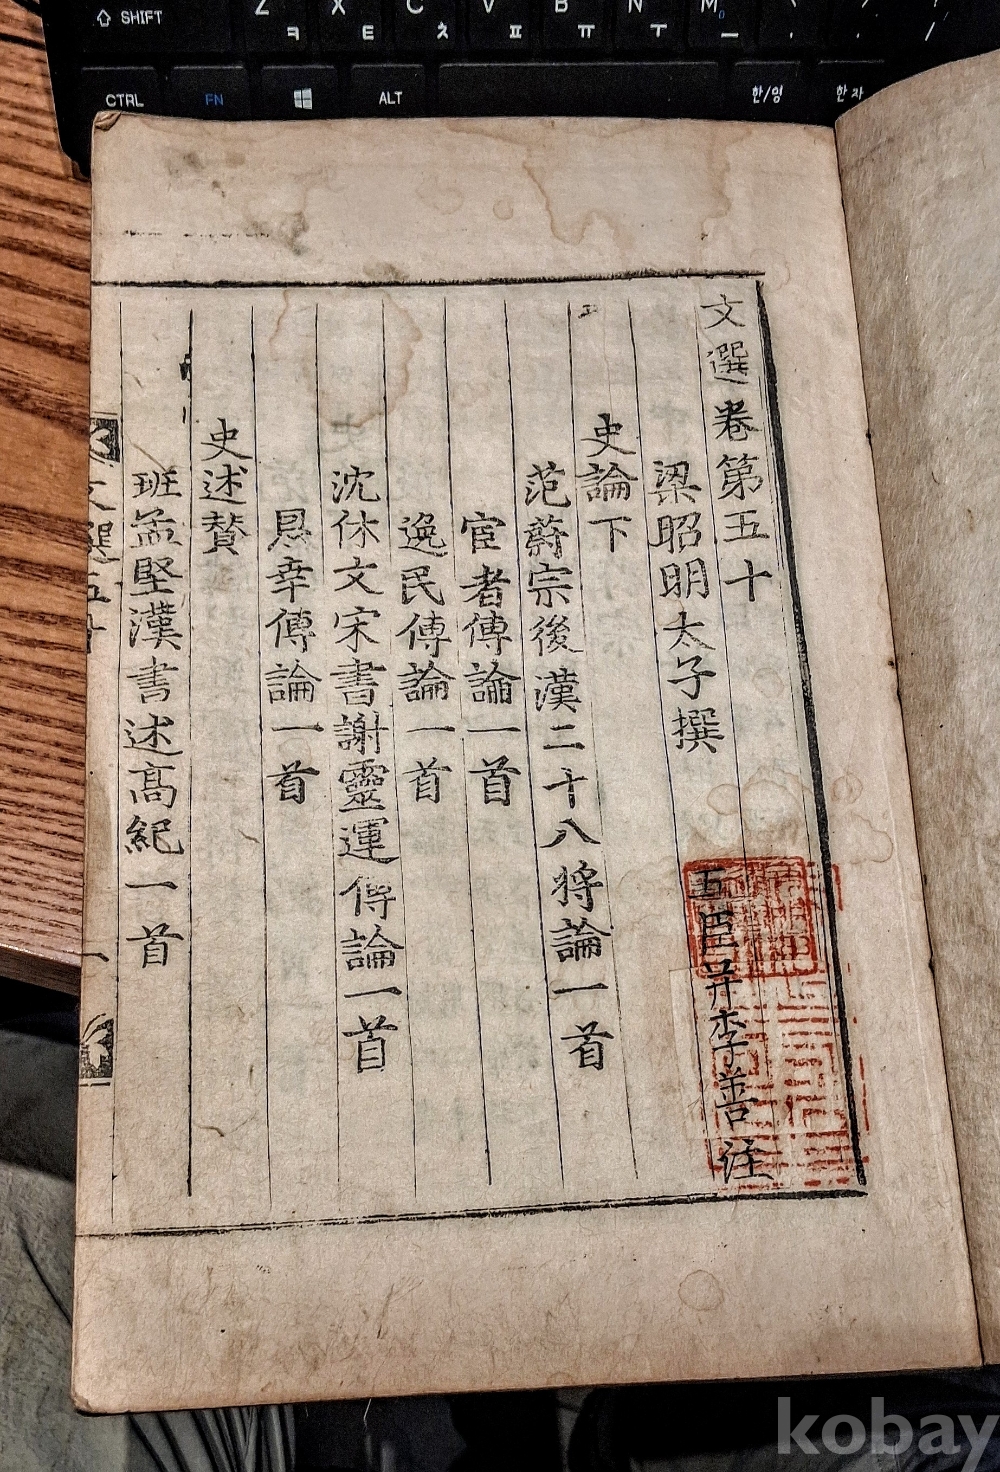 SHIFT Z ㅋ X ㅌ C ㅊ V ㅍ B ㅠ N ㅜ M ㅡ
CTRL FN ALT 한/영 한자
文選卷第五十
梁昭明太子撰
五臣并李善注
史論下
范蔚宗後漢二十八將論一首
宦者傳論一首
逸民傳論一首
沈休文宋書謝靈運傳論一首
恩幸傳論一首
史述贊
班孟堅漢書述高紀一首
文選五十
一
kobay